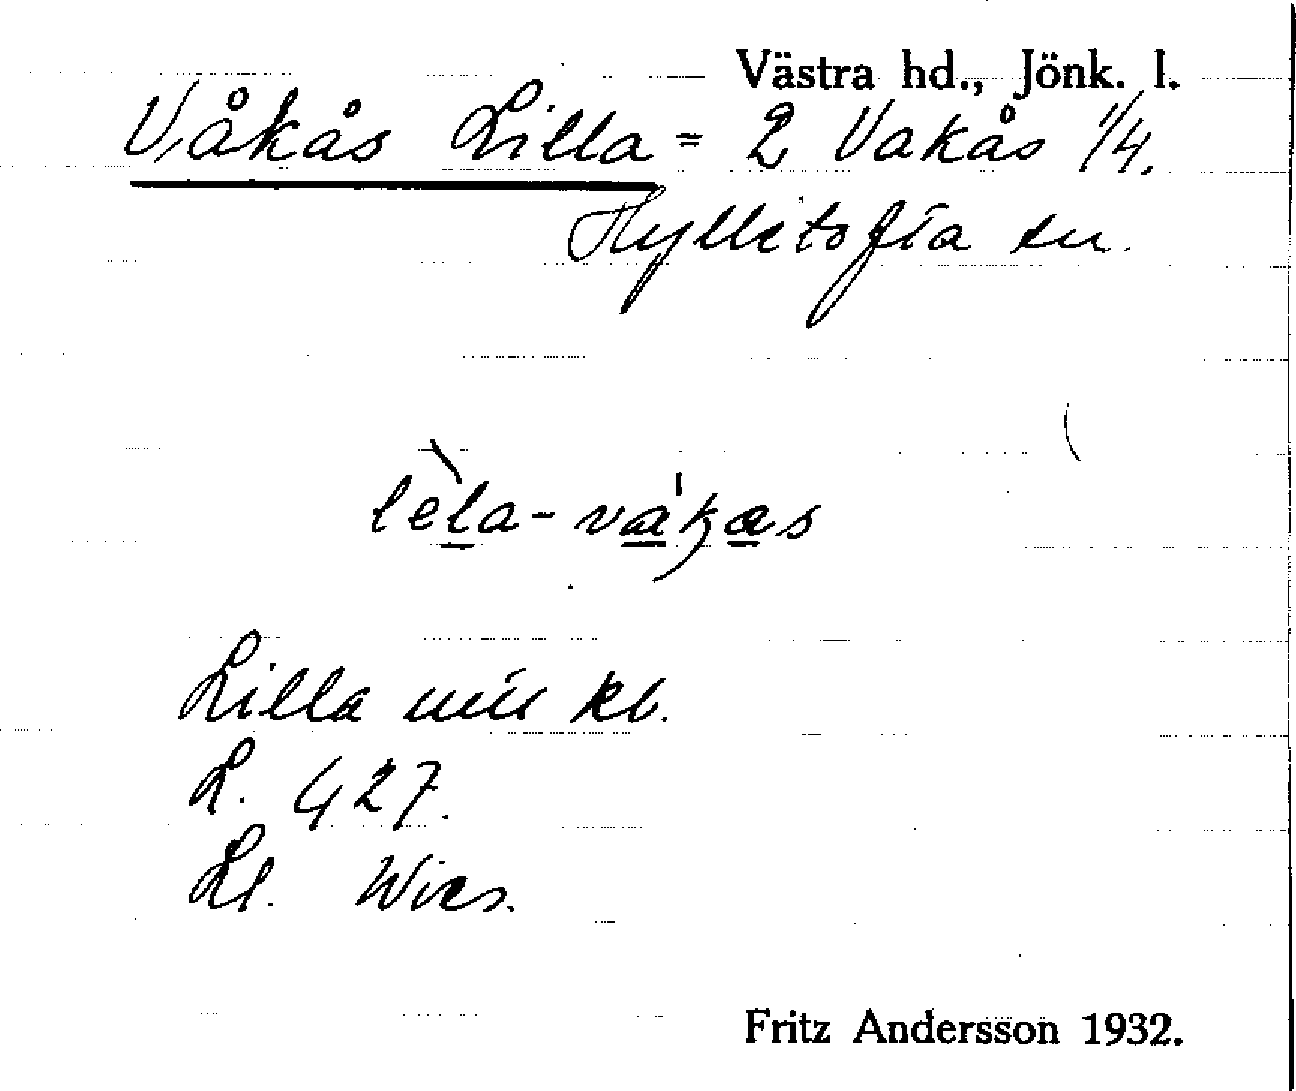 Västra hd., Jönk. l.
Våkås Lilla = 2 Vakås 1/4.
Hylletofta sn.
lèla-vákas
Lilla kb.
L. 427.
Ll. Wies.
Fritz Andersson 1932.